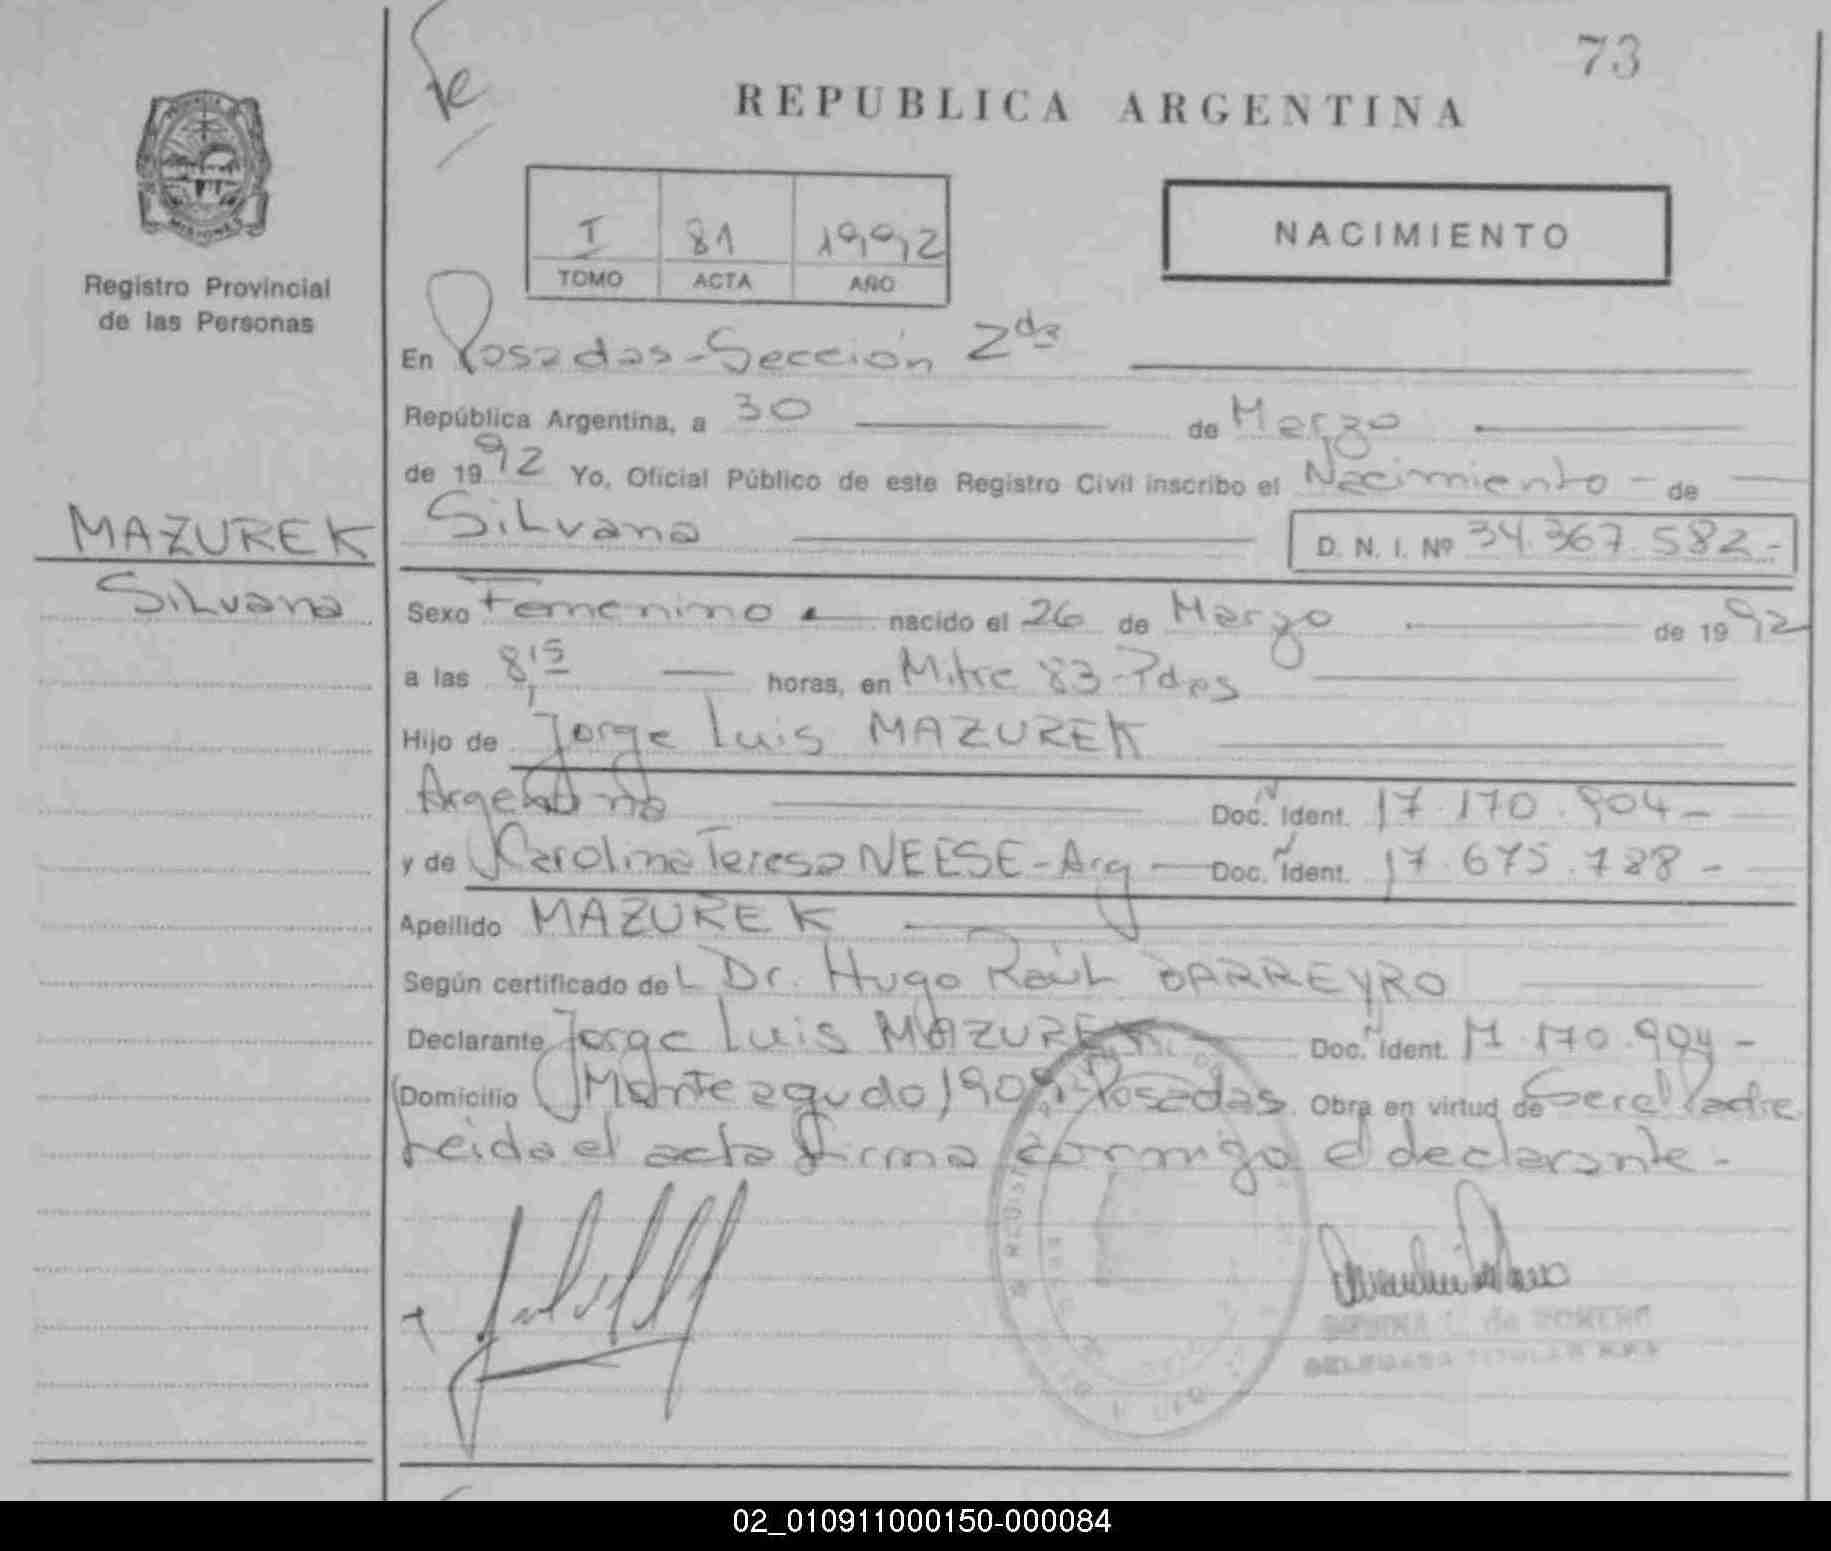 73
REPUBLICA ARGENTINA
I 81 1992
TOMO ACTA AÑO
NACIMIENTO
Registro Provincial
de las Personas
MAZUREK
Silvana
En Posadas-Sección 2da
República Argentina, a 30 de Marzo
de 1992 Yo, Oficial Público de este Registro Civil inscribo el Nacimiento - de
Silvana D. N. I. Nº 34.367.582-
Sexo Femenino nacido el 26 de Marzo de 1992
a las 8,15 horas, en Mitre 83-Pdas
Hijo de Jorge Luis MAZUREK
Argentino Doc. Ident. 17.170.904-
y de Carolina Teresa NEESE-Arg Doc. Ident. 17.675.788-
Apellido MAZUREK
Según certificado del Dr. Hugo Raúl BARREYRO
Declarante Jorge Luis MAZUREK Doc. Ident. 17.170.904-
Domicilio Monteagudo 1909-Posadas Obra en virtud de Ser el Padre
Leida el acta firma conmigo el declarante-
02_010911000150-000084